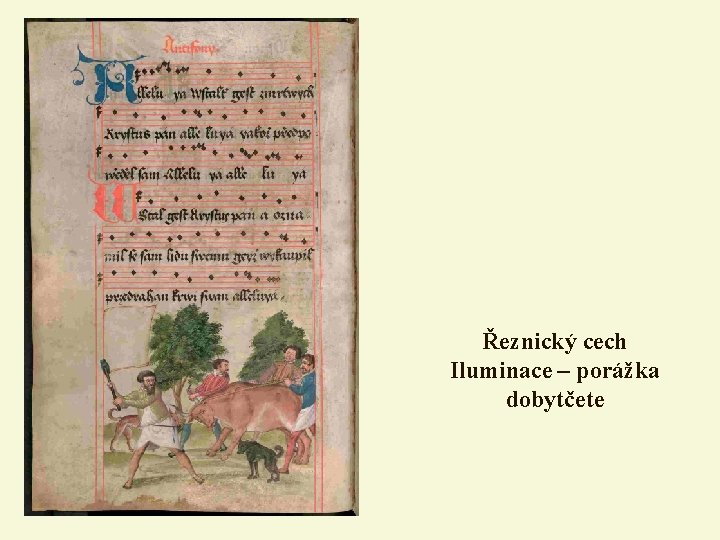 Antifony.
Allelu ya Wstalť gest zmrtwych
Krystus pan alle lu ya yakož předpo
wěděl sam Allelu ya alle lu ya
WStal gest Krystus pan a ozna:
mil se sam lidu swemu geyž wykaupil
przedrahau krwi swau alleluya.
Řeznický cech
Iluminace – porážka
dobytčete